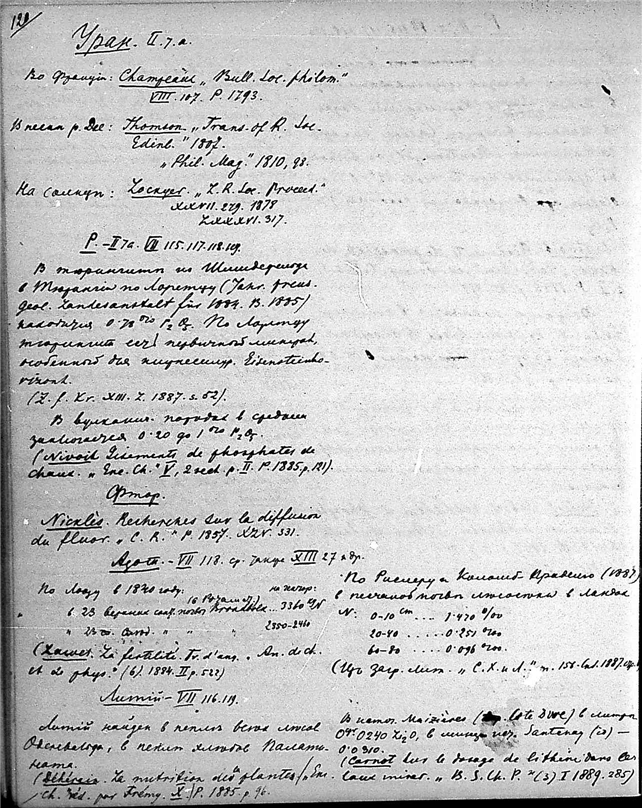 120
Уран. II.7.a.
Во Франции: Champeaux „Bull. Soc. philom."
VIII.107. P. 1793.
В пески р. Dee: Thomson „Trans. of R. Soc.
Edinb." 1807.
„Phil. Mag." 1810, 98.
На солнце: Lockyer. „L.R. Soc. Proceed."
XXVII.279. 1878
LXXXVI.317.
P. – II 7a. VII 115.117.118.119.
В тюрингите из Шмидефельда
в Тюрингии по Лоретцу (Jahr. preus.
geol. Landesanstalt für 1884. B. 1885)
находится 0.78 % P₂O₅. По Лоретцу
тюрингит есть первичный минерал,
особенный для нижнесилур. Eisensteinho-
rizont.
(Z. f. Kr. XIII. L. 1887. s. 52).
В вулканич. породах в среднем
заключается 0.20 до 1 % P₂O₅.
(Nivoit Gisements de phosphates de
chaux. „Enc. Ch." V, 2 sect. p. II. P. 1885. p. 121).
Фтор.
Nicklès. Recherches sur la diffusion
du fluor. „C. R." P. 1857. XLV. 331.
Азот. – VII 118. ср. также XIII 27 и др.
По Лоозу в 1840 году:
на гектар:
в 23 верхних сант. почвы Broadbalk... 3360 kN
2350-2460
(Lawes. La fertilité. Tr. d'ang. „An. de ch.
et de phys." (6) 1884. II p. 522)
По Рислеру и Коломб-Прадель (1887)
в песчаной почве
N: 0-10 cm .... 1.470 ‰
20-40 ...... 0.251 ‰
60-80 .... 0.096 ‰
(Цъ загр. лит. „С.Х. и Л." т. 156. 1887.
Литий – VII 116.119.
Литий найден в пепле всех лесов
Оденвальда, в пепле хлебов Палати-
ната.
(Déhérain. La nutrition des plantes/„Enc.
Ch. réd. par Frémy. X./P. 1885. p. 96.
В источ. Maizières (Côte D'or) в литре
0gr 0240 Li₂O, в источ. Santenay (id) —
0.0310.
(Carnot Sur le dosage de lithine dans les
eaux miner. „B. S. Ch. P." (3) I 1889. 285)